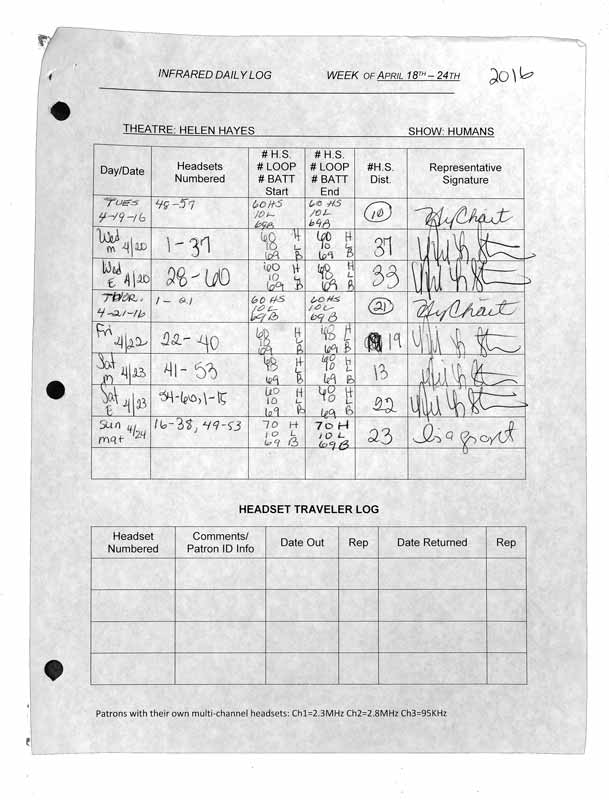 INFRARED DAILY LOG WEEK OF APRIL 18TH – 24TH 2016
THEATRE: HELEN HAYES SHOW: HUMANS
Day/Date Headsets Numbered # H.S. # LOOP # BATT Start # H.S. # LOOP # BATT End #H.S. Dist. Representative Signature
TUES 4-19-16 48-57 60 HS 10 L 69B 60 HS 10 L 69B 10
Wed m 4/20 1-37 60 H 10 L 69 B 60 H 10 L 69 B 37
Wed E 4/20 28-60 60 H 10 L 69 B 60 H 10 L 69 B 33
THUR. 4-21-16 1-21 60 HS 10 L 69 B 60 HS 10 L 69 B 21
Fri 4/22 22-40 60 H 10 L 69 B 60 H 10 L 69 B 19
Sat m 4/23 41-53 60 H 10 L 69 B 60 H 10 L 69 B 13
Sat E 4/23 54-60, 1-15 60 H 10 L 69 B 60 H 10 L 69 B 22
Sun mat 4/24 16-38, 49-53 70 H 10 L 69 B 70 H 10 L 69 B 23 Lisa Grant
HEADSET TRAVELER LOG
Headset Numbered Comments/ Patron ID Info Date Out Rep Date Returned Rep
Patrons with their own multi-channel headsets: Ch1=2.3MHz Ch2=2.8MHz Ch3=95KHz